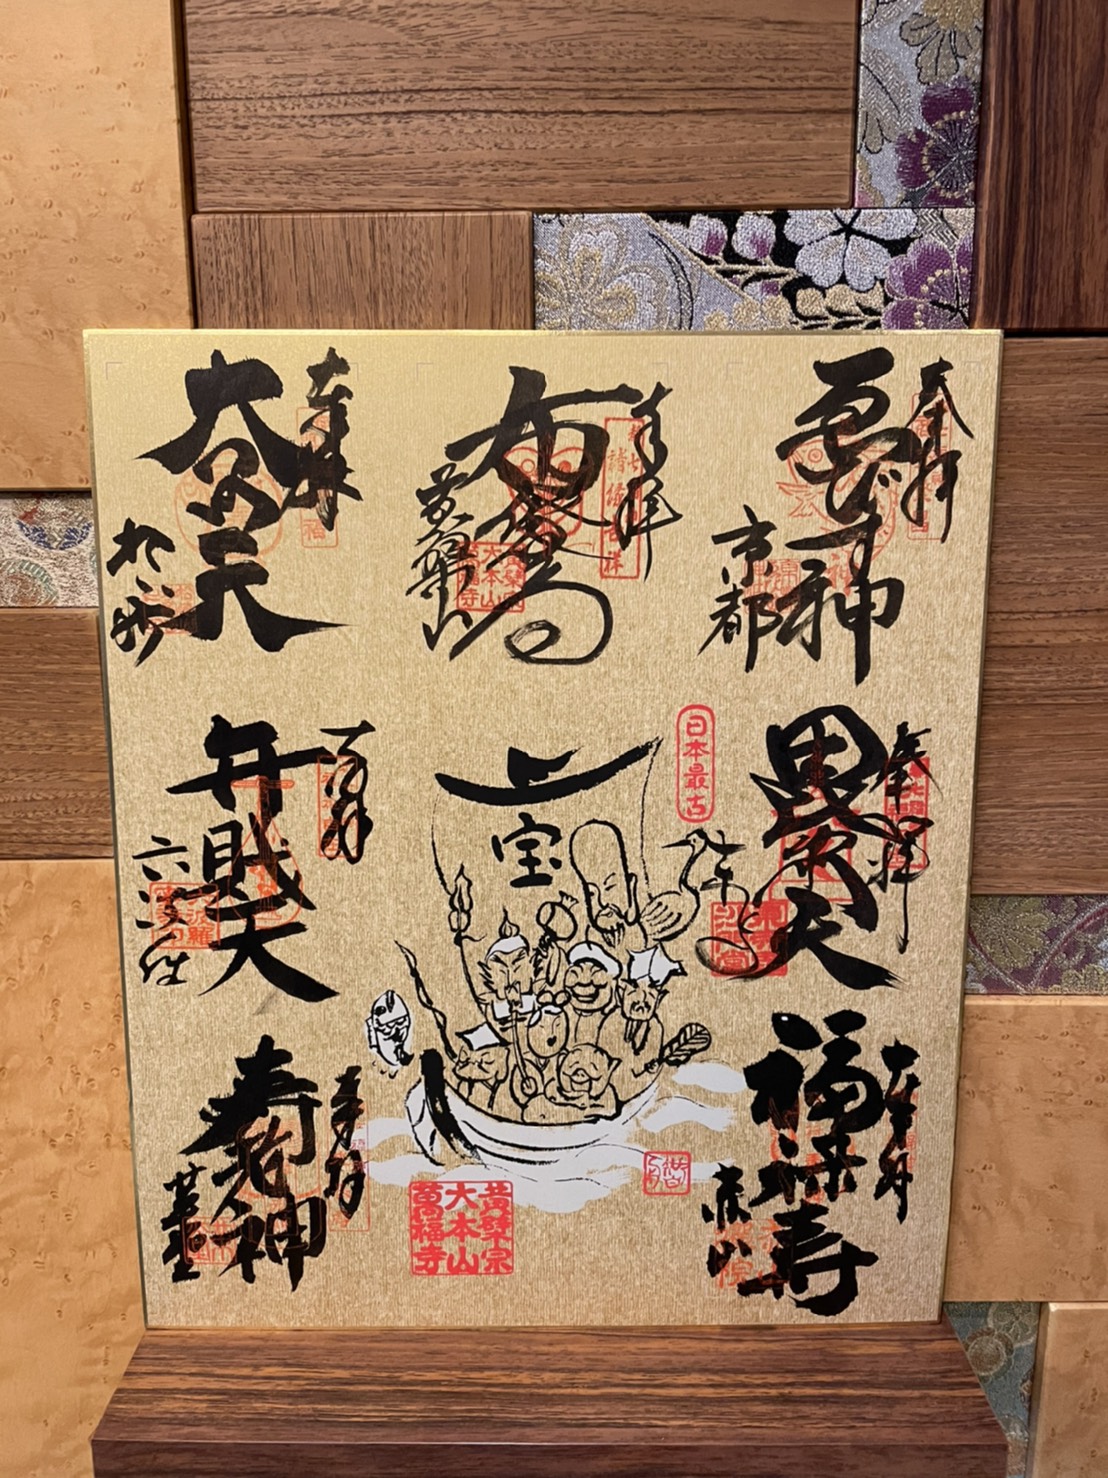 奉拝
ゑびす神
京都
奉拝
布袋尊
黄檗山
黄檗宗
大本山
萬福寺
奉拝
大黒天
松ヶ崎
日本最古
奉拝
毘沙門天
東寺
宝
奉拝
弁財天
六波羅
奉拝
福禄寿
赤山
奉拝
寿老神
革堂
黄檗宗
大本山
萬福寺